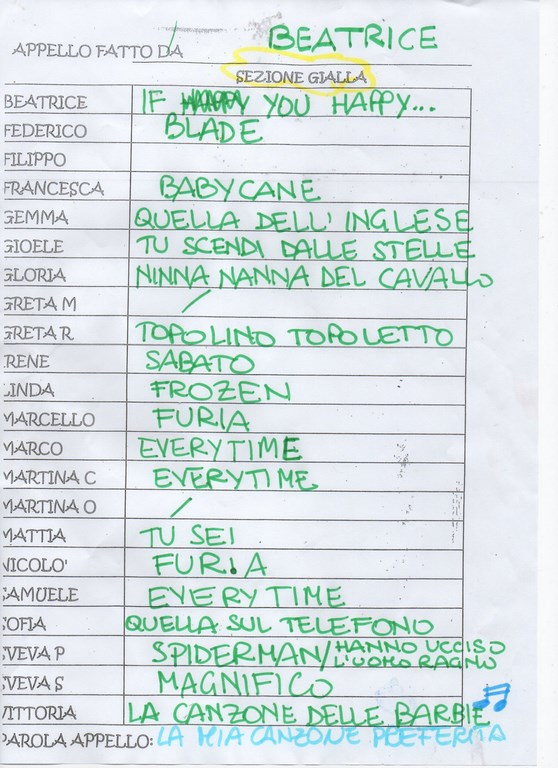 APPELLO FATTO DA BEATRICE
SEZIONE GIALLA
BEATRICE IF HAPPY YOU HAPPY...
FEDERICO BLADE
FILIPPO
FRANCESCA BABYCANE
GEMMA QUELLA DELL'INGLESE
GIOELE TU SCENDI DALLE STELLE
GLORIA NINNA NANNA DEL CAVALLO
GRETA M /
GRETA R TOPOLINO TOPOLETTO
IRENE SABATO
LINDA FROZEN
MARCELLO FURIA
MARCO EVERYTIME
MARTINA C EVERYTIME
MARTINA O /
MATTIA TU SEI
NICOLO' FURIA
SAMUELE EVERYTIME
SOFIA QUELLA SUL TELEFONO
SVEVA P SPIDERMAN/HANNO UCCISO
L'UOMO RAGNO
SVEVA S MAGNIFICO
VITTORIA LA CANZONE DELLE BARBIE
PAROLA APPELLO: LA MIA CANZONE PREFERITA